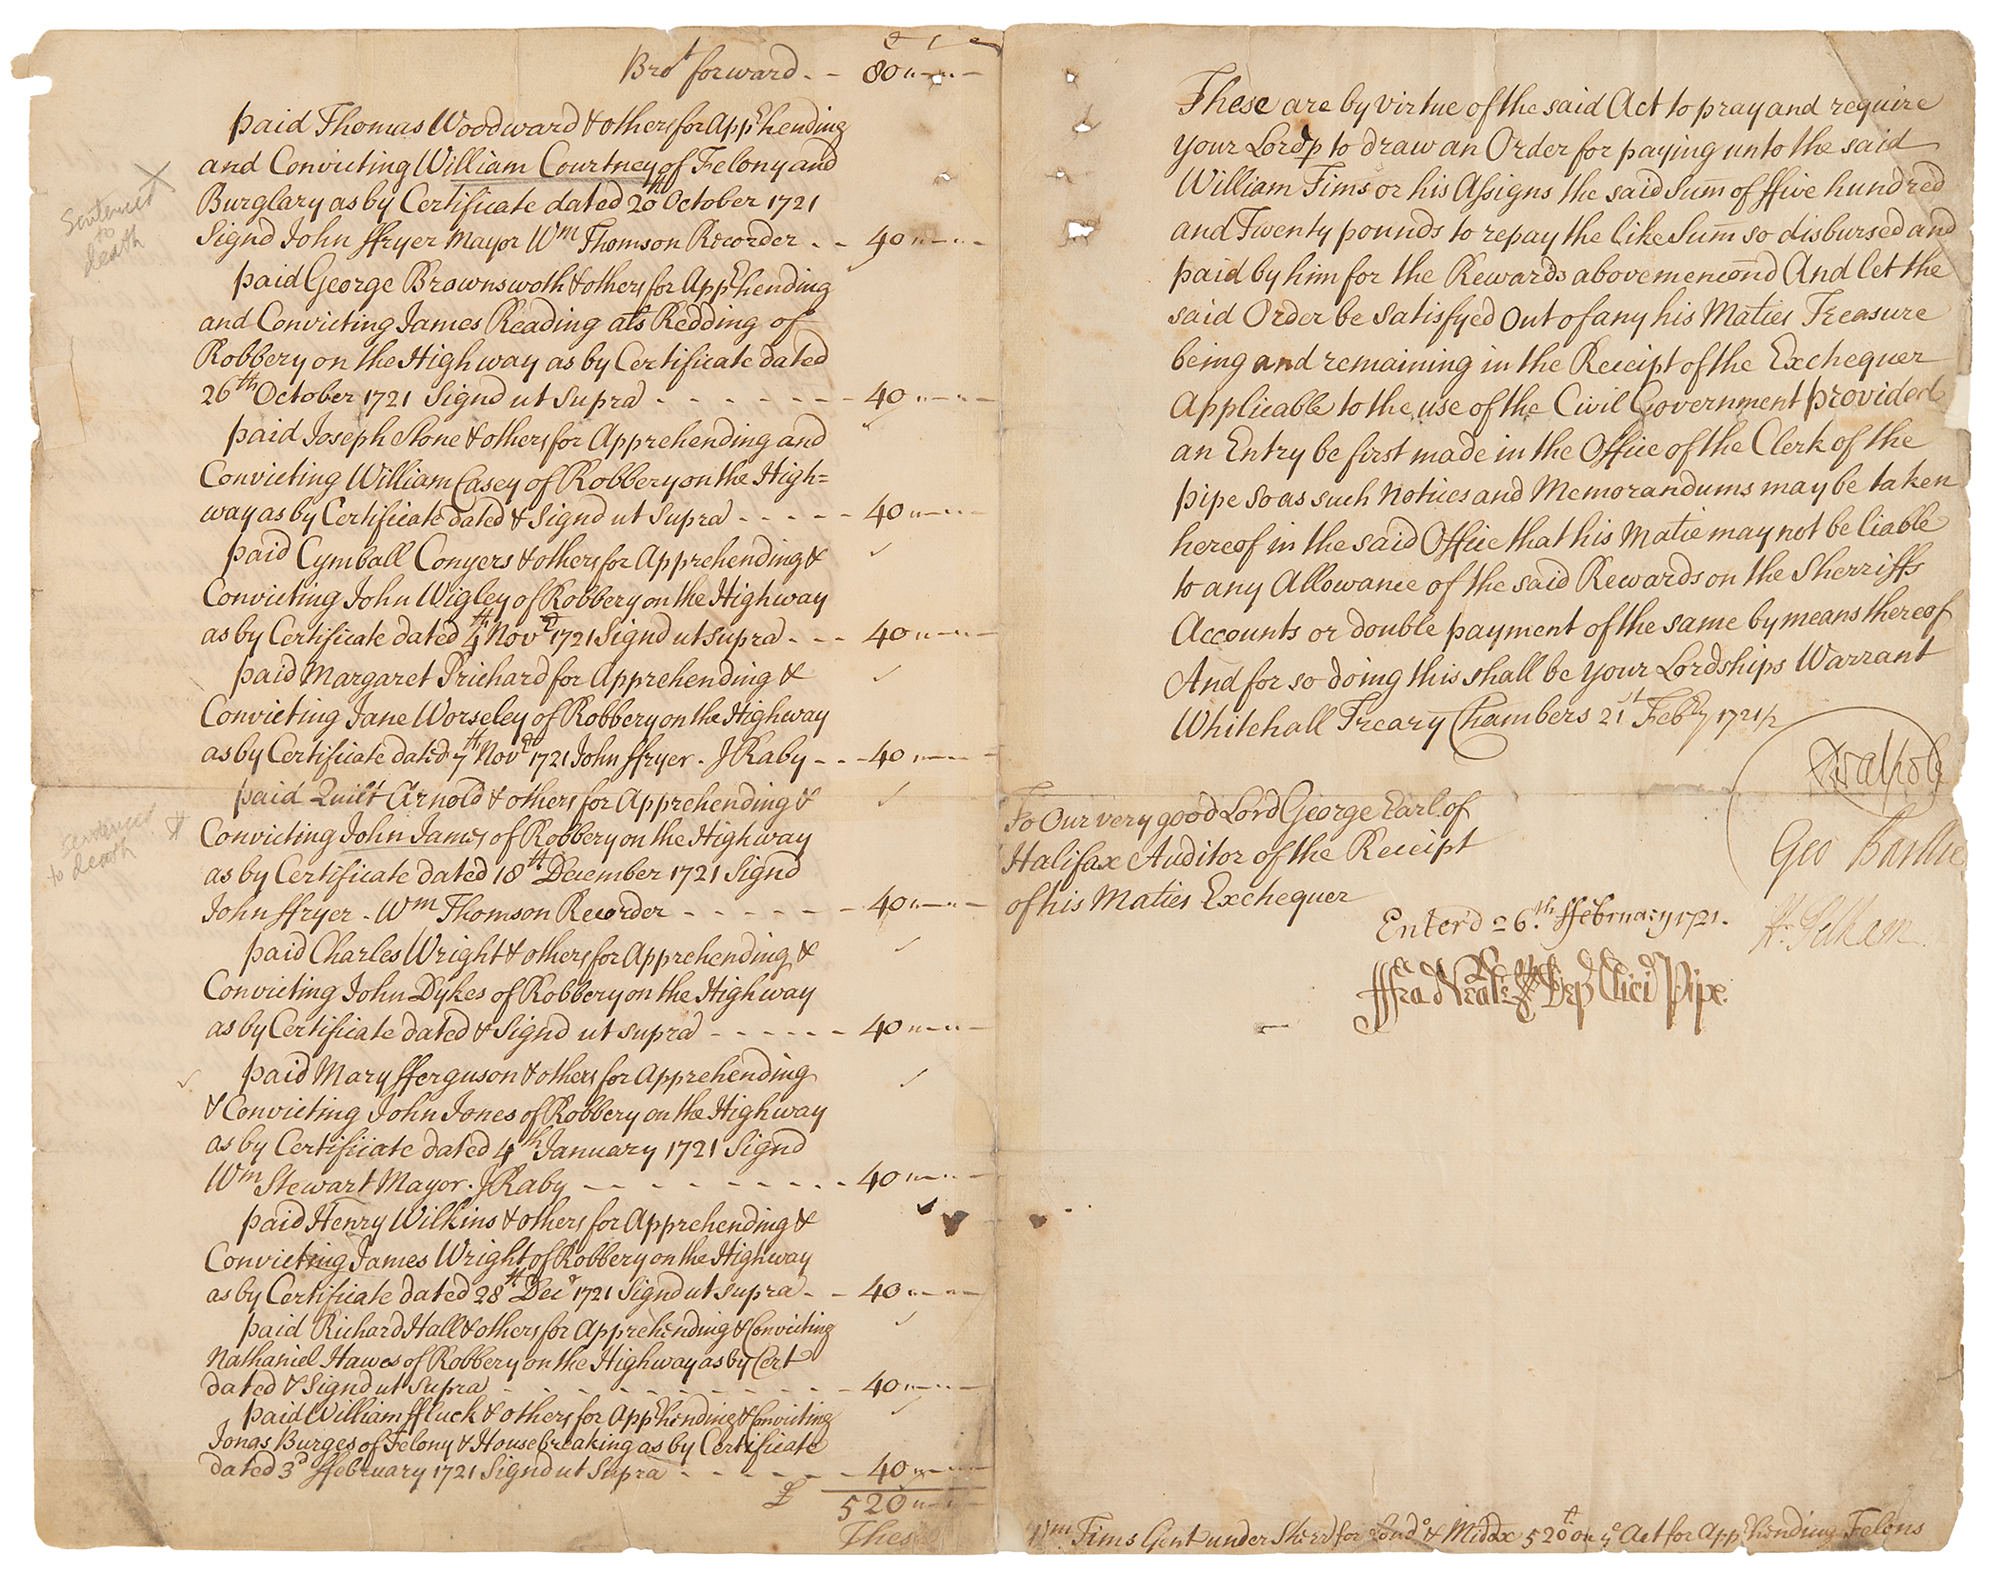 Bro.t forward - - 80 "-"-
paid Thomas Woodward & others for Appr̃hending
and Convicting William Courtney of Felony and
Burglary as by Certificate dated 20th October 1721
Signd John ffryer Mayor Wm Thomson Recorder - - 40 "-"-
paid George Brownsworth & others for Appr̃hending
and Convicting James Reading als Redding of
Robbery on the Highway as by Certificate dated
26th October 1721 Signd ut supra - - - - - - - 40 "-"-
paid Joseph Stone & others for Apprehending and
Convicting William Casey of Robbery on the High=
way as by Certificate dated & signd ut supra - - - - - 40 "-"-
paid Cymball Conyers & others for Apprehending &
Convicting John Wigley of Robbery on the Highway
as by Certificate dated 4th Novd 1721 Signd ut supra - - - 40 "-"-
paid Margaret Prichard for Apprehending &
Convicting Jane Worseley of Robbery on the Highway
as by Certificate dated 7th Nov 1721 John ffryer. J Raby - - - 40 "-"-
paid Quilt Arnold & others for Apprehending &
Convicting John James of Robbery on the Highway
as by Certificate dated 18th December 1721 Signd
John ffryer - Wm Thomson Recorder - - - - - - 40 "-"-
paid Charles Wright & others for Apprehending &
Convicting John Dykes of Robbery on the Highway
as by Certificate dated & Signd ut supra - - - - - - 40 "-"-
paid Mary fferguson & others for Apprehending
& Convicting John Jones of Robbery on the Highway
as by Certificate dated 4th January 1721 Signd
Wm Stewart Mayor. J Raby - - - - - - - - - 40 "-"-
paid Henry Wilkins & others for Apprehending &
Convicting James Wright of Robbery on the Highway
as by Certificate dated 28th Decr 1721 Signd ut supra - - 40 "-"-
paid Richard Hall & others for Apprehending & Convicting
Nathaniel Hawes of Robbery on the Highway as by Cert
dated & Signd ut supra - - - - - - - - - 40 "-"-
paid William ffluck & others for Appr̃hending & Convicting
Jonas Burges of Felony & Housebreaking as by Certificate
dated 3d ffebruary 1721 Signd ut supra - - - - - - 40 "-"-
£ 520 "-"-
These
Sentenced
to
death
sentenced
to death
These are by virtue of the said Act to pray and require
your Lordp to draw an Order for paying unto the said
William Tims or his Assigns the said Sum̄ of ffive hundred
and Twenty pounds to repay the like Sum̄ so disbursed and
paid by him for the Rewards abovemenc̄ond And let the
said Order be satisfyed Out of any his Maties Treasure
being and remaining in the Receipt of the Exchequer
Applicable to the use of the Civil Government provided
an Entry be first made in the Office of the Clerk of the
pipe so as such Notices and Memorandums may be taken
hereof in the said Office that his Matie may not be liable
to any Allowance of the said Rewards on the Sherriffs
Accounts or double payment of the same by means thereof
And for so doing this shall be your Lordships Warrant
Whitehall Treary Chambers 21st Febry 1721/2
RWalpole
Geo Baillie
To Our very good Lord George Earl of
Halifax Auditor of the Receipt
of his Maties Exchequer
Enter'd 26th ffebruary 1721.
ffra Neale Dep Clici Pipe
Wm Tims Gent under Sherr̃ for Londo & Middx 520li on ye Act for Appr̃hending Felons